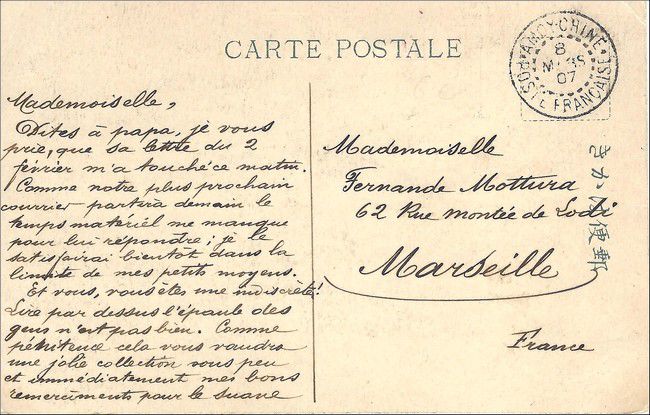 CARTE POSTALE
AMOY-CHINE
8
MARS
07
POSTE FRANÇAISE
Mademoiselle,
Dites à papa, je vous
prie, que sa lettre du 2
février m'a touché ce matin.
Comme notre plus prochain
courrier partira demain le
temps matériel me manque
pour lui répondre; je le
satisfairai bientôt dans la
limite de mes petits moyens.
Et vous, vous êtes une indiscrète!
Lire par dessus l'épaule des
gens n'est pas bien. Comme
pénitence cela vous vaudra
une jolie collection vous peu
et immédiatement mes bons
remerciments pour le suave
Mademoiselle
Fernande Mottura
62 Rue montée de Lodi
Marseille
France